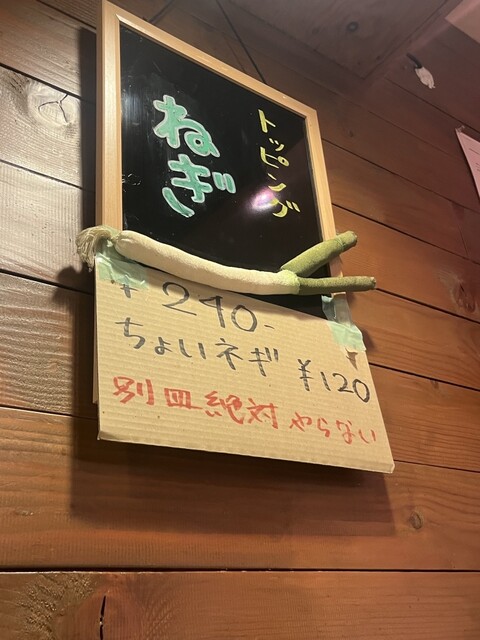 トッピング
ねぎ
¥240-
ちょいネギ ¥120
別皿絶対やらない